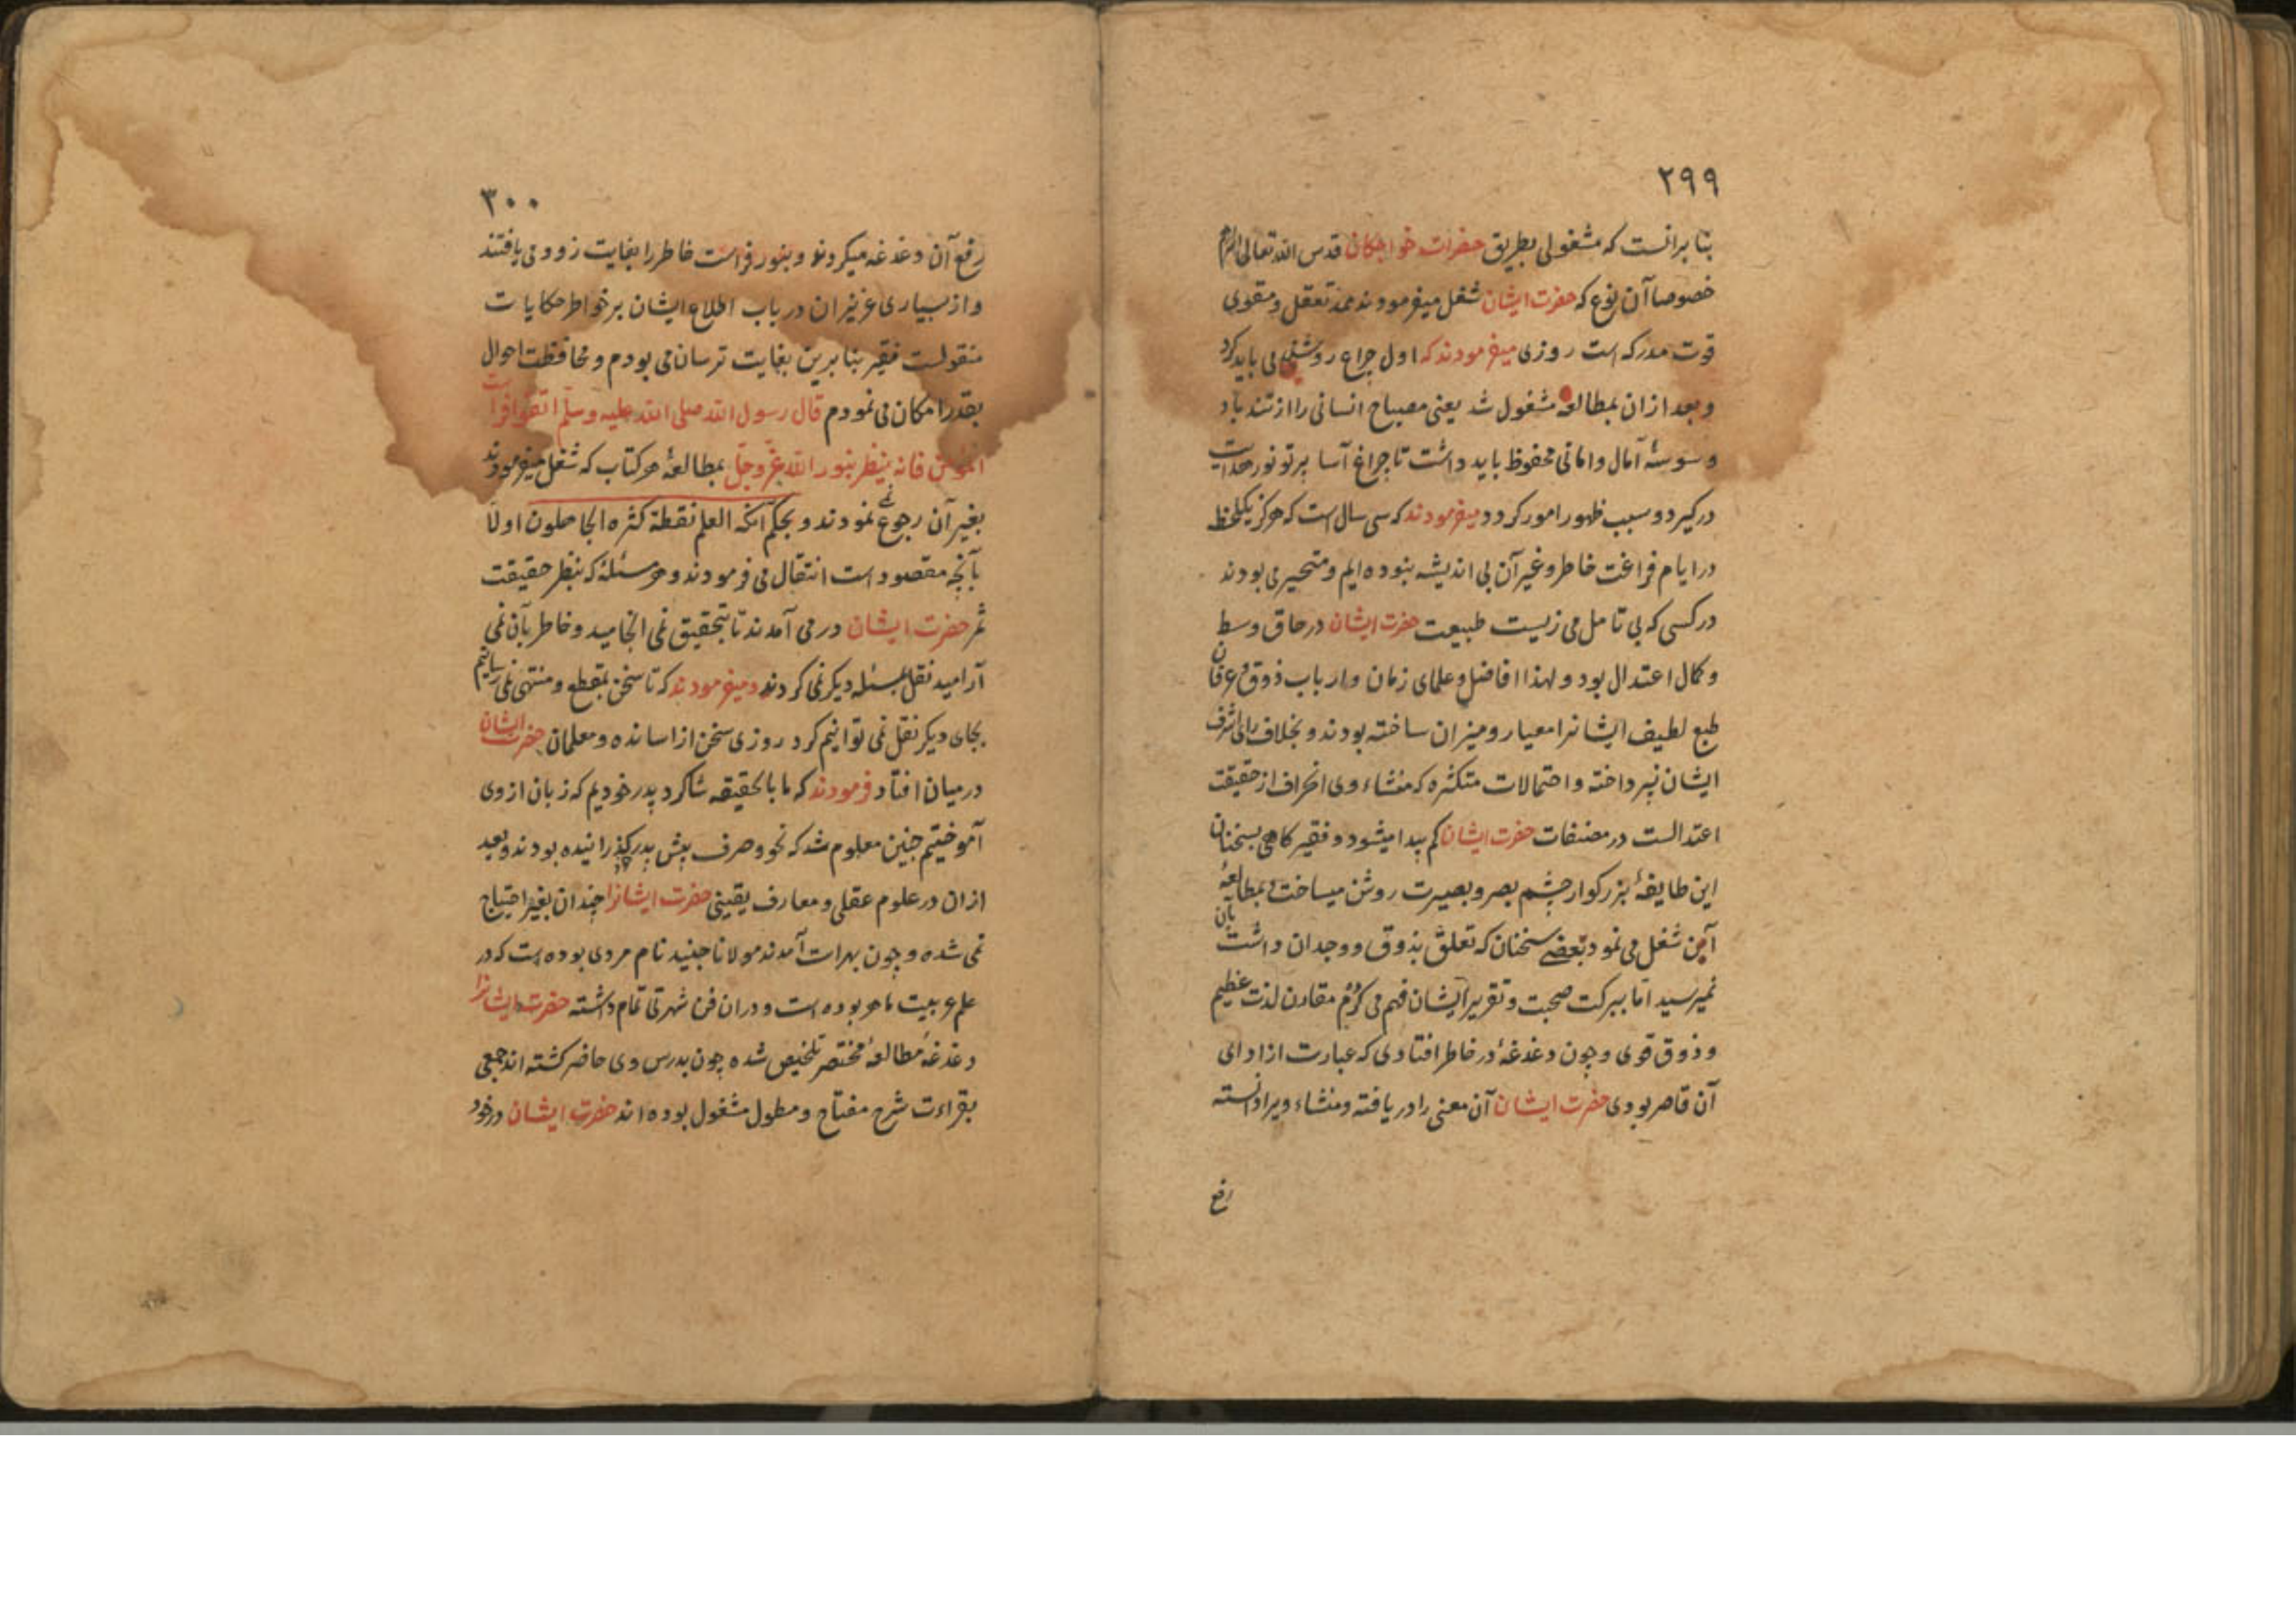 ۲۹۹
بنا برانست که مشغولی بطریق حضرات خواجکان قدس الله تعالی
خصوصا آن نوع که حضرت ایشان شغل میفرمودند ممد تعقل و مقوی
قوت مدرکه است روزی میفرمودند که اول چراغ روشن می باید کرد
و بعد ازان بمطالعه مشغول شد یعنی مصباح انسانی را از تند باد
وسوسهٔ آمال و امانی محفوظ باید داشت تا چراغ آسا پرتو نور
درکیرد و سبب ظهور امور کردد و میفرمودند که سی سال است که هرکز یکلحظه
در ایام فراغت خاطر و غیر آن بی اندیشه نبوده ایم و متحیر می بودند
در کسی که بی تامل می زیست طبیعت حضرت ایشان در حاق وسط
و کمال اعتدال بود و لهذا افاضل و علمای زمان و ارباب ذوق و عرفان
طبع لطیف ایشانرا معیار و میزان ساخته بودند و بخلاف رای اشرف
ایشان نپرداخته و احتمالات متکثره که منشاء وی انحراف از حقیقت
اعتدالست در مصنفات حضرت ایشان کم پیدا میشود و فقیر کاهی بسخنان
این طایفهٔ بزرکوار چشم بصر و بصیرت روشن میساخت بمطالعهٔ
آن شغل می نمود بعضی سخنان که تعلق بذوق و وجدان داشت بآن
نمیرسید اما ببرکت صحبت و تقریر ایشان فهم می کردم مقارن لذت عظیم
و ذوق قوی و چون دغدغهٔ در خاطر افتادی که عبارت از ادای
آن قاصر بودی حضرت ایشان آن معنی را دریافته و منشاء ویرا دانسته
رفع
۳۰۰
رفع آن دغدغه میکردند و بنور فراست خاطر را بغایت زود می یافتند
و از بسیاری عزیزان در باب اطلاع ایشان بر خواطر حکایات
منقولست فقیر بنا برین بغایت ترسان می بودم و محافظت احوال
بقدر امکان می نمودم قال رسول الله صلی الله علیه وسلم اتقوا فراست
المؤمن فانه ینظر بنور الله عز وجل بمطالعهٔ هر کتاب که شغل میفرمودند
بغیر آن رجوع نمی نمودند و بحکم آنکه العلم نقطة کثره الجاهلون اولا
بآنچه مقصود است انتقال می فرمودند و هر مسئلهٔ که بنظر حقیقت
ثمر حضرت ایشان در می آمدند تا بتحقیق نمی انجامید و خاطر بآن نمی
آرامید نقل بمسئله دیکر نمی کردند و میفرمودند که تا سخن بمقطع و منتهی نمی رسانیم
بجای دیکر نقل نمی توانیم کرد روزی سخن از اساتذه و معلمان حضرت ایشان
در میان افتاد فرمودند که ما بالحقیقه شاکرد پدر خودیم که زبان از وی
آموختیم چنین معلوم شد که نحو و صرف پیش پدر کذرانیده بودند و بعد
ازان در علوم عقلی و معارف یقینی حضرت ایشانرا چندان بغیر احتیاج
نمی شده و چون بهرات آمدند مولانا جنید نام مردی بوده است که در
علم عربیت ماهر بوده است و دران فن شهرتی تمام داشته حضرت ایشانرا
دغدغهٔ مطالعهٔ مختصر تلخیص شده چون بدرس وی حاضر کشته اند جمعی
بقراءت شرح مفتاح و مطول مشغول بوده اند حضرت ایشان در خود